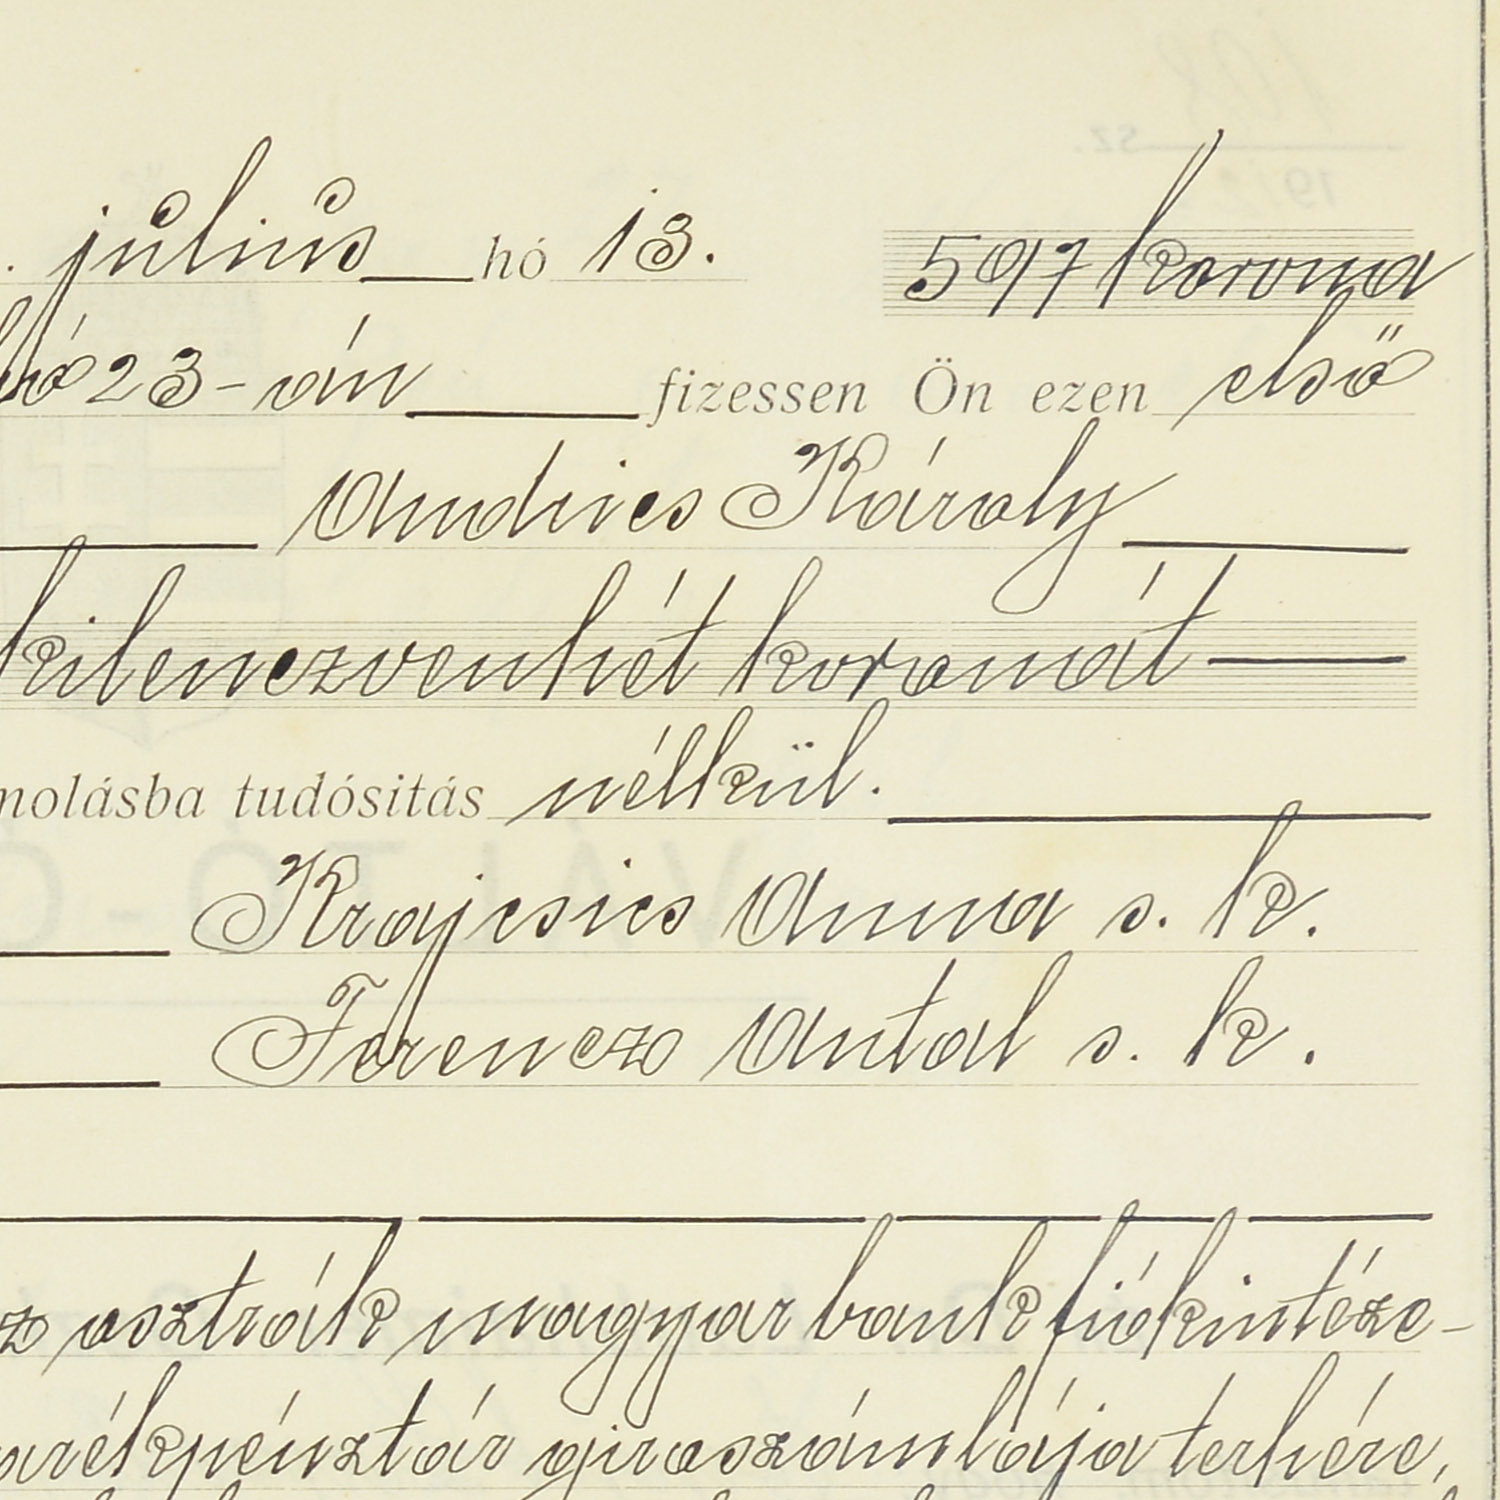 . július hó 13. 597 korona
hó 23-án fizessen Ön ezen első
Andrics Károly
kilenczvenhét koronát
molásba tudósitás nélkül.
Krajcsics Anna s. k.
Ferencz Antal s. k.
z osztrák magyar bank fiókintéze-
arékpénztár giroszámlája terhére,